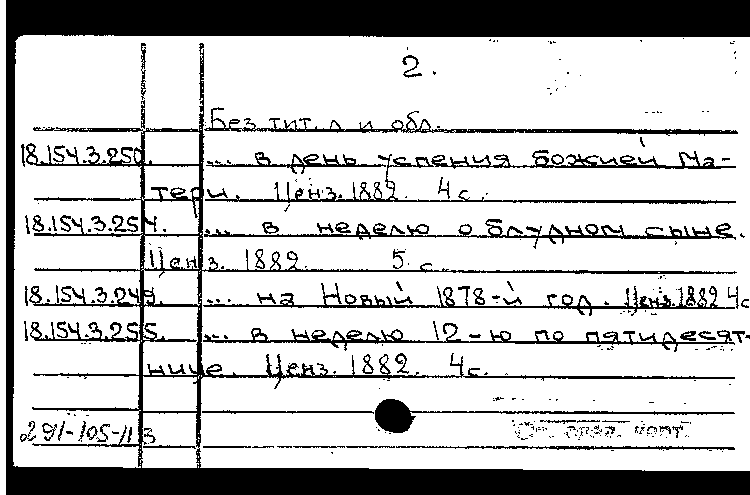 2.
Без тит. л и обл.
18.154.3.250. ... в день успения божией Ма-
тери. Ценз. 1882. 4 с.
18.154.3.254. ... в неделю о блудном сыне.
Ценз. 1882. 5 с.
18.154.3.249. ... на Новый 1878-й год. Ценз. 1882 4с
18.154.3.255. ... в неделю 12-ю по пятидесят-
нице. Ценз. 1882. 4с.
291-105-113